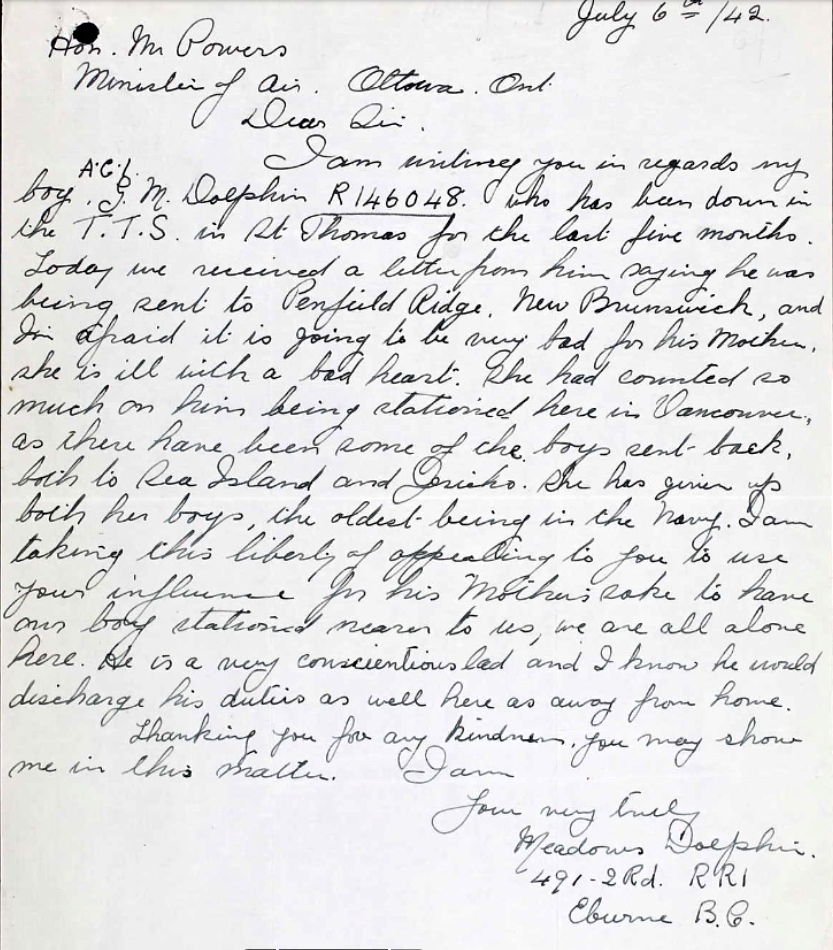 July 6th /42.
Hon. Mr Powers
Minister of Air. Ottowa. Ont.
Dear Sir.
I am writing you in regards my
A.C.1.
boy, G. M. Dolphin R146048. who has been down in
the T.T.S. in St Thomas for the last five months.
Today we received a letter from him saying he was
being sent to Penfield Ridge, New Brunswick, and
I'm afraid it is going to be very bad for his Mother,
she is ill with a bad heart. She had counted so
much on him being stationed here in Vancouver,
as there have been some of the boys sent back,
both to Sea Island and Jericho. She has given up
both her boys, the oldest being in the Navy. I am
taking this liberty of appealing to you to use
your influence for his Mother's sake to have
our boy stationed nearer to us, we are all alone
here. He is a very conscientious lad and I know he would
discharge his duties as well here as away from home.
Thanking you for any kindness, you may show
me in this matter. I am
Your very truly
Meadows Dolphin.
491-2Rd. RR1
Eburne B.C.